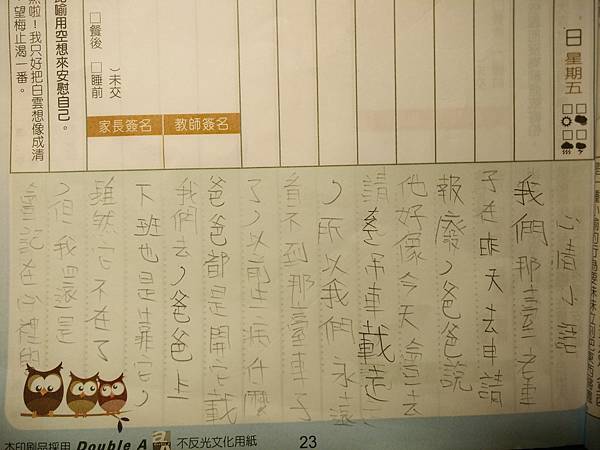 日 星期五
未交
□餐後 □睡前
教師簽名
家長簽名
喻用空想來安慰自己。
然啦!我只好把白雲想像成清
望梅止渴一番。
心情小語
我們那臺老車
子在昨天去申請
報廢,爸爸說
他好像今天會去
請吊車載走
,所以我們永遠
看不到那臺車子
了,以前什麼
爸爸都是開它載
我們去,爸爸上
下班也是靠它,
雖然它不在了
,但我還是
會記在心裡的
本印刷品採用 Double A 不反光文化用紙
23